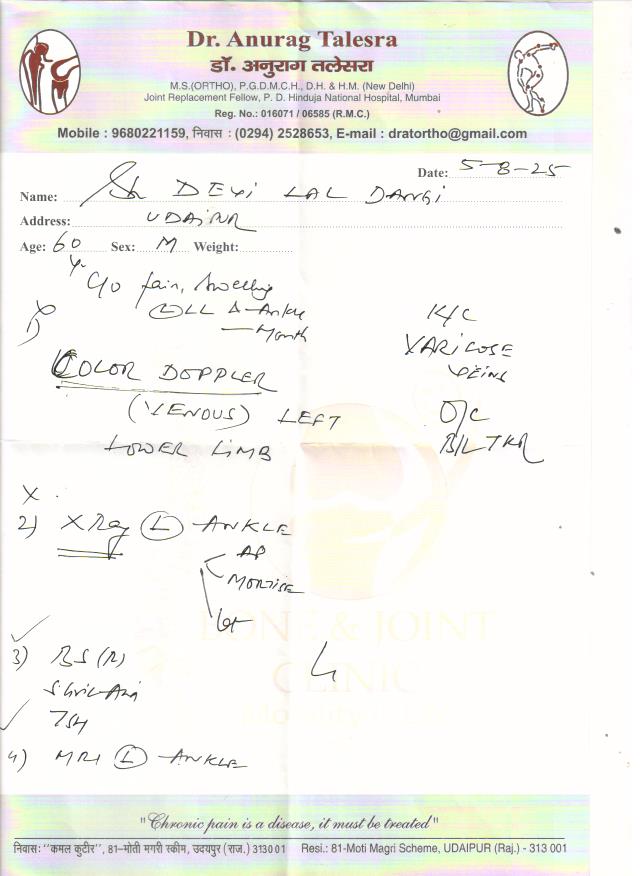 Dr. Anurag Talesra
डॉ. अनुराग तलेसरा
M.S.(ORTHO), P.G.D.M.C.H., D.H. & H.M. (New Delhi)
Joint Replacement Fellow, P. D. Hinduja National Hospital, Mumbai
Reg. No.: 016071 / 06585 (R.M.C.)
Mobile : 9680221159, निवास : (0294) 2528653, E-mail : dratortho@gmail.com
Date: 5-8-25
Name: Sh DEVI LAL DANGI
Address: UDAIPUR
Age: 60 Sex: M Weight:
Yr
C/o pain, swelling
(L) LL & Ankle
— Month
K/C
VARICOSE
VEINS
O/C
B/L TKR
1)
COLOR DOPPLER
(VENOUS) LEFT
LOWER LIMB
X .
2) X Ray (L) ANKLE
AP
MORTISE
Lat
BONE & JOINT
CLINIC
3) BS (R)
S. Uric Acid
TSH
4) MRI (L) ANKLE
"Chronic pain is a disease, it must be treated"
निवास: "कमल कुटीर", 81-मोती मगरी स्कीम, उदयपुर (राज.) 313001 Resi.: 81-Moti Magri Scheme, UDAIPUR (Raj.) - 313 001